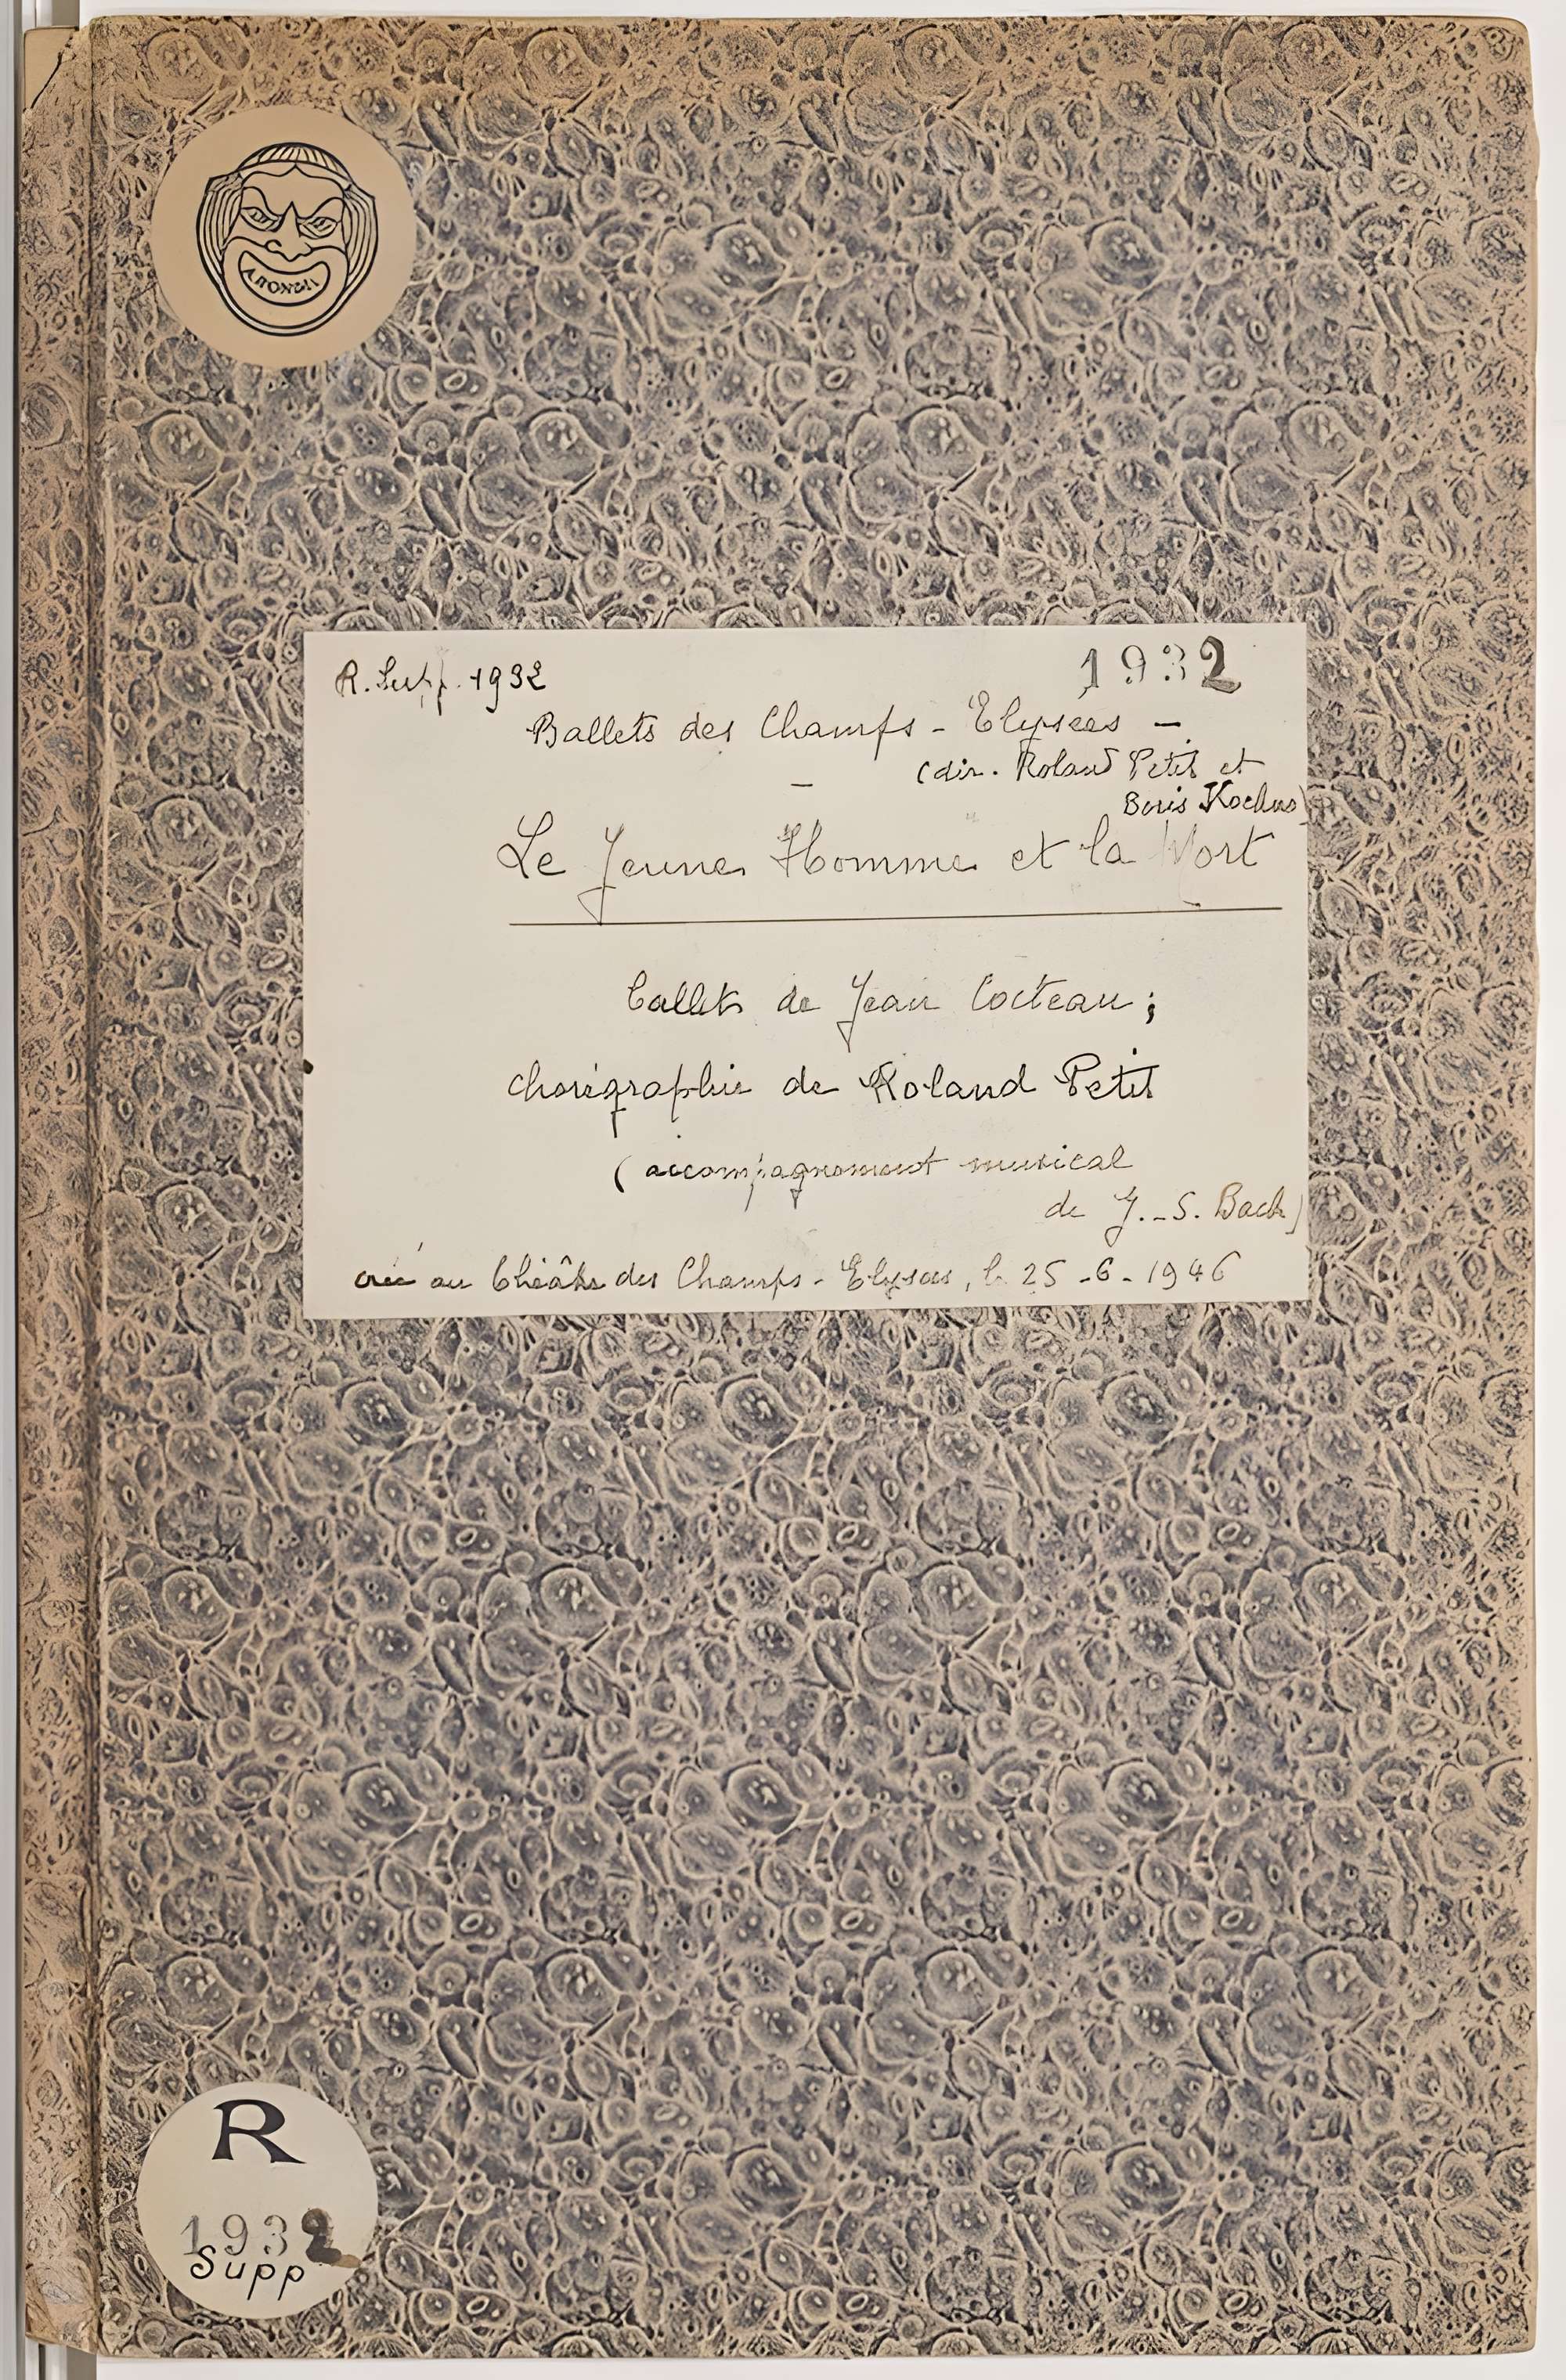 A. RONDEL
R. Supp. 1932
1932
Ballets des Champs-Elysées -
(dir. Roland Petit et
Boris Kochno)
Le Jeune Homme et la Mort
ballet de Jean Cocteau ;
chorégraphie de Roland Petit
(accompagnement musical
de J.-S. Bach)
créé au Théâtre des Champs-Elysées, le 25-6-1946
R
1932
Supp